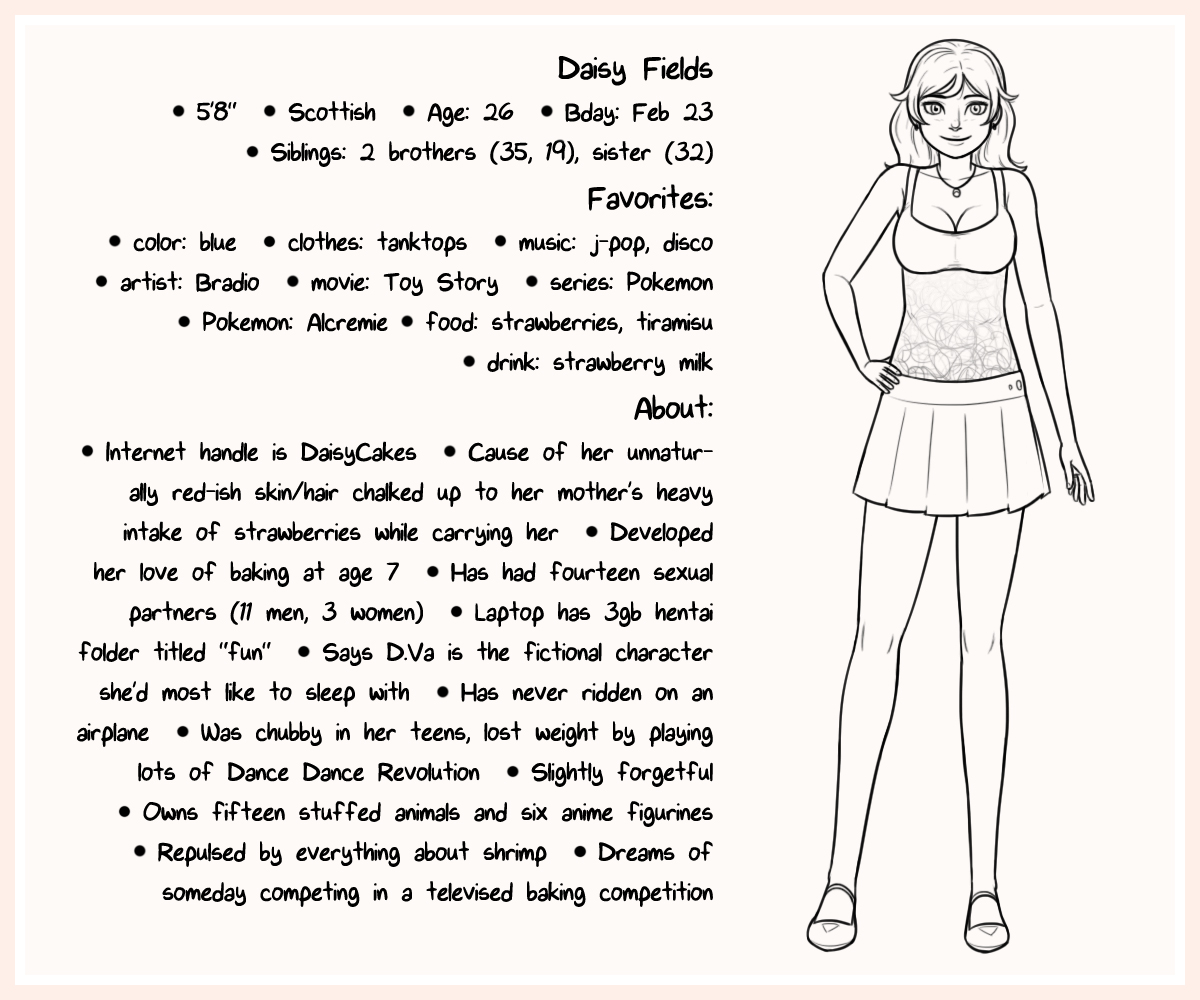 Daisy Fields
• 5'8" • Scottish • Age: 26 • Bday: Feb 23
• Siblings: 2 brothers (35, 19), sister (32)
Favorites:
• color: blue • clothes: tanktops • music: j-pop, disco
• artist: Bradio • movie: Toy Story • series: Pokemon
• Pokemon: Alcremie • food: strawberries, tiramisu
• drink: strawberry milk
About:
• Internet handle is DaisyCakes • Cause of her unnatur-
ally red-ish skin/hair chalked up to her mother's heavy
intake of strawberries while carrying her • Developed
her love of baking at age 7 • Has had fourteen sexual
partners (11 men, 3 women) • Laptop has 3gb hentai
folder titled "fun" • Says D.Va is the fictional character
she'd most like to sleep with • Has never ridden on an
airplane • Was chubby in her teens, lost weight by playing
lots of Dance Dance Revolution • Slightly forgetful
• Owns fifteen stuffed animals and six anime figurines
• Repulsed by everything about shrimp • Dreams of
someday competing in a televised baking competition